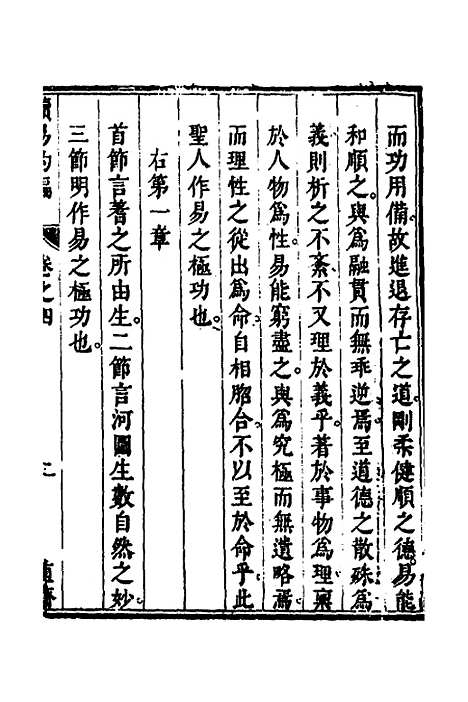 而功用備。故進退存亡之道。剛柔健順之德。易能
和順之。與爲融貫而無乖逆焉。至道德之散殊爲
義則析之不紊不又理於義乎。著於事物爲理稟
於人物爲性。易能窮盡之。與爲究極而無遺略焉
而理性之從出爲命自相脗合不以至於命乎此
聖人作易之極功也。
右第一章
首節言蓍之所由生。二節言河圖生數自然之妙
三節明作易之極功也。
卷之四